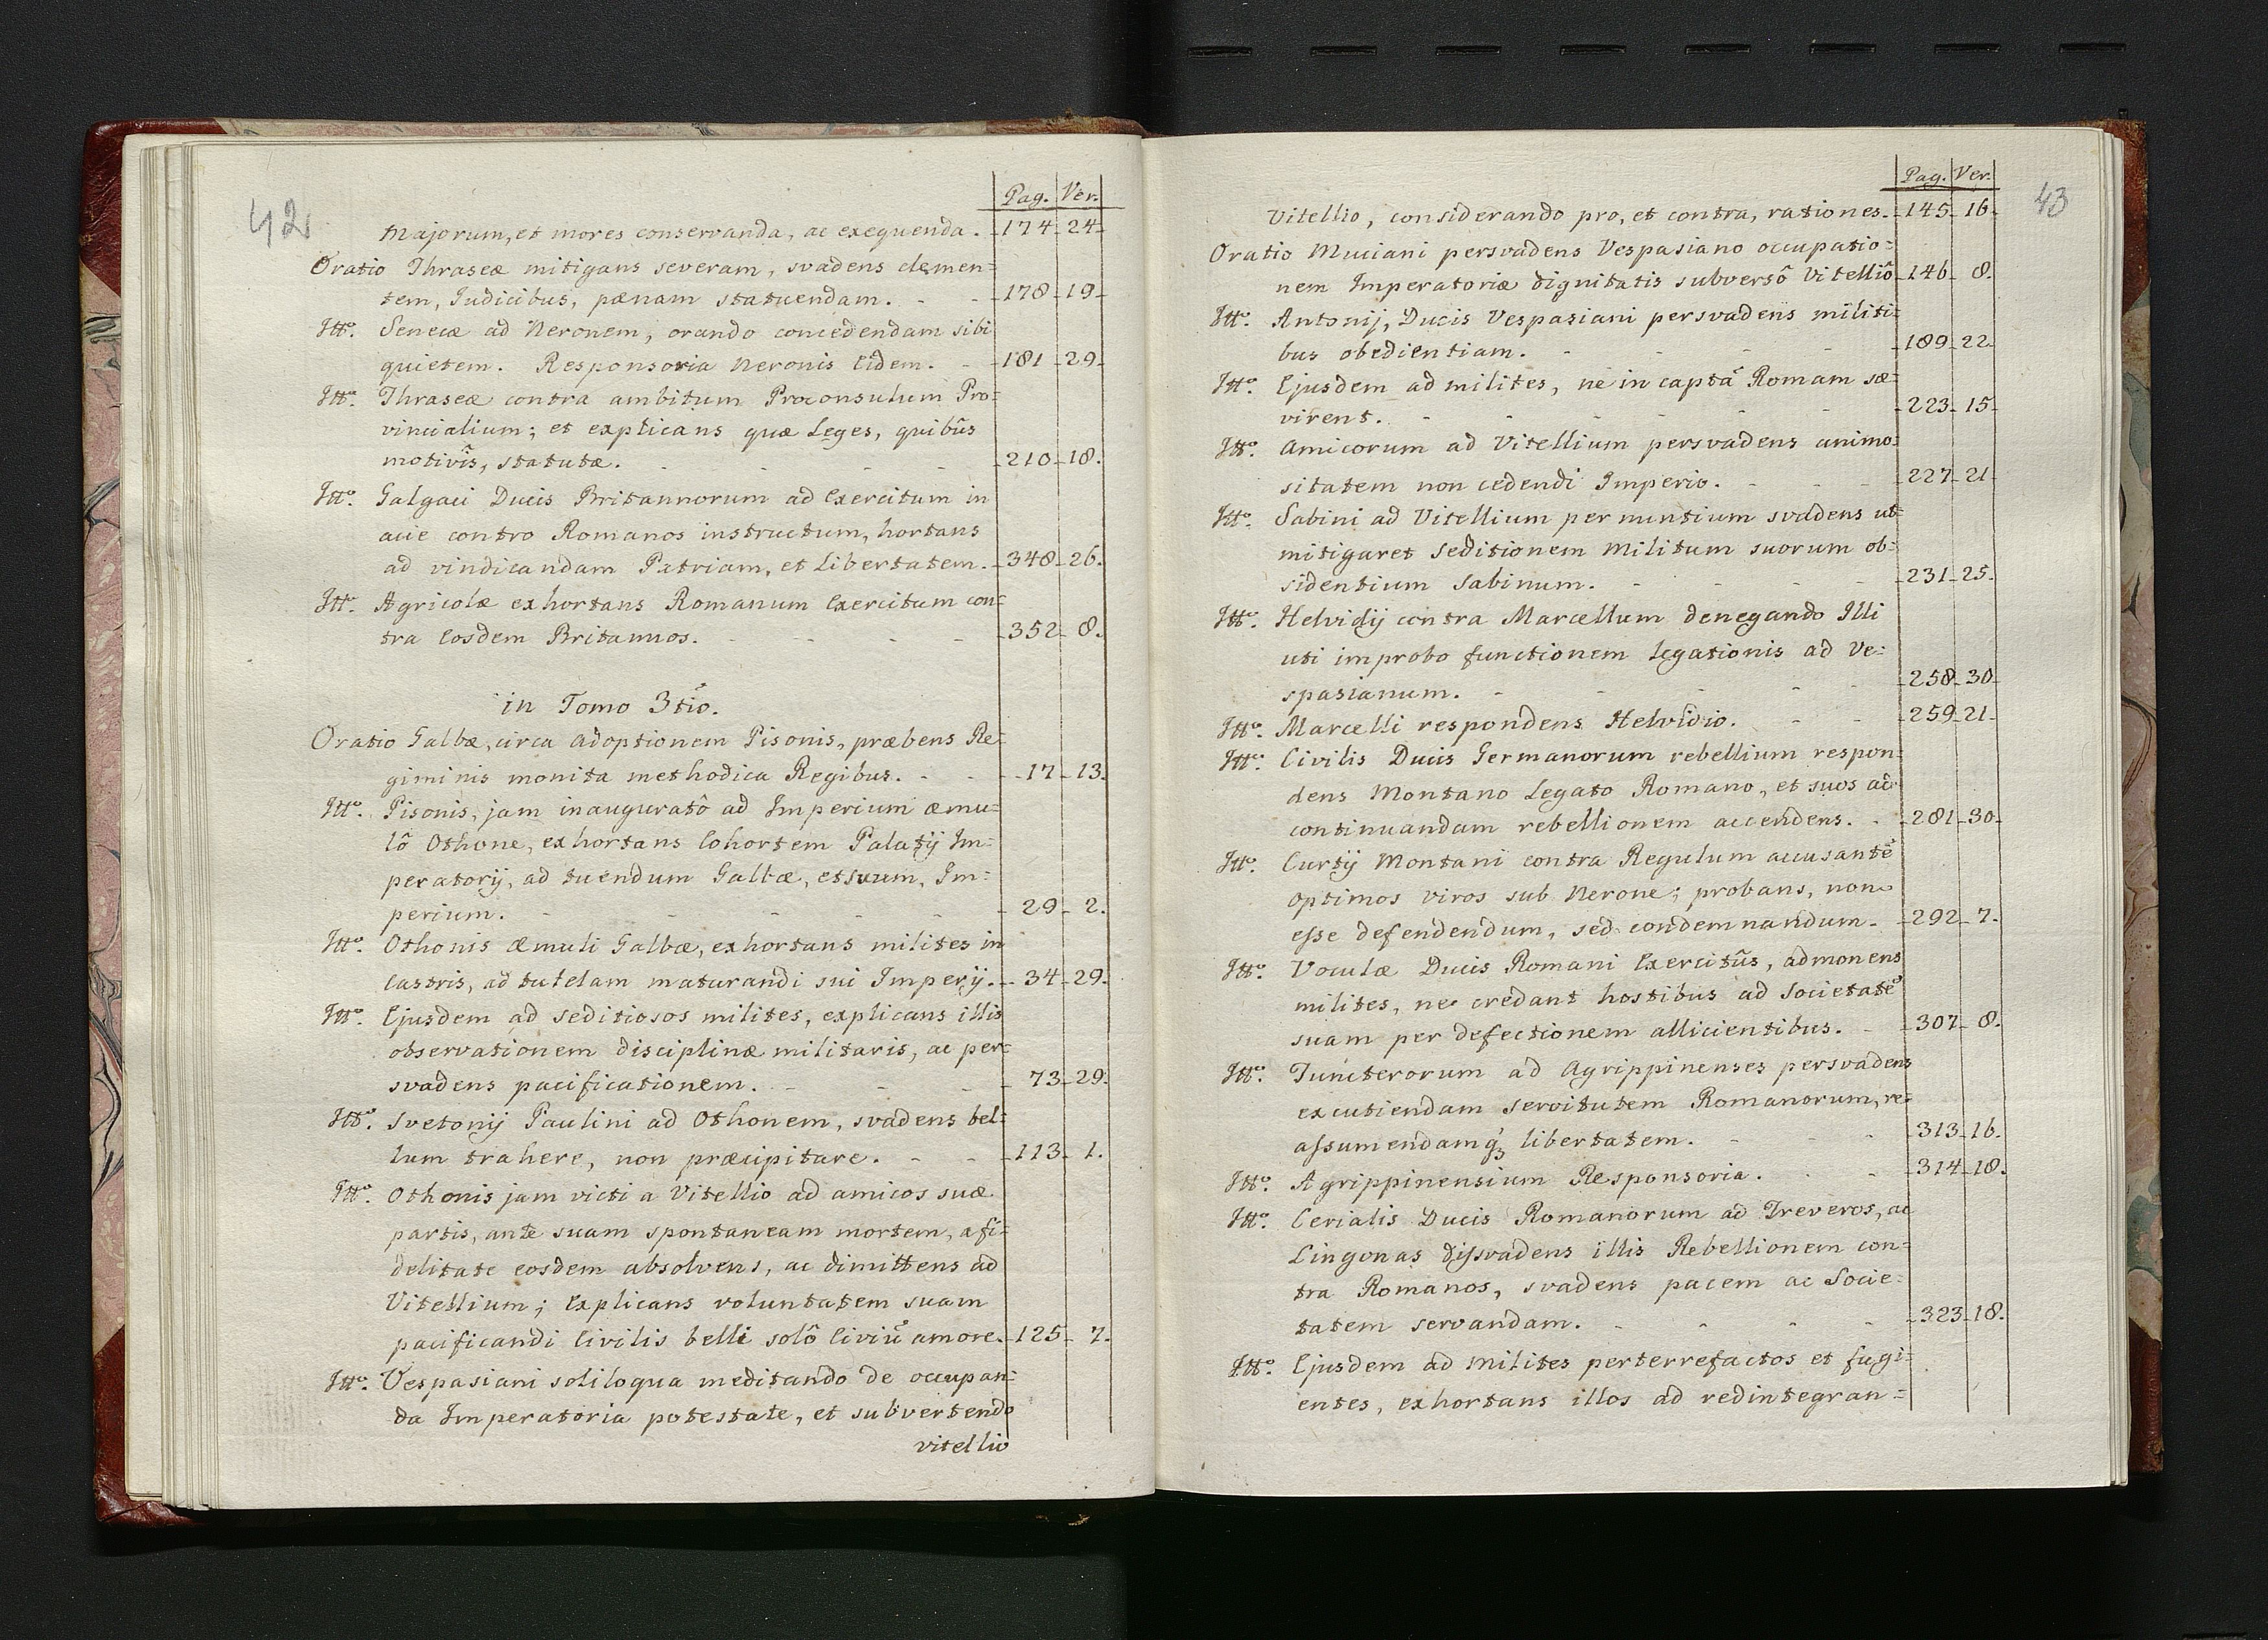 42
Pag. Ver.
Majorum, et mores conservanda, ac exequenda. 174 24
Oratio Thraseæ mitigans severam, svadens clemen=
tem, Judicibus, pænam statuendam. - - 178 19
Itto. Senecæ ad Neronem, orando concedendam sibi
quietem. Responsoria Neronis Eidem. - 181 29
Itto. Thraseæ contra ambitum Proconsulum Pro=
vincialium; et explicans quæ Leges, quibûs
motivîs, statutæ. - - - - 210 18.
Itto. Galgaci Ducis Britannorum ad Exercitum in
acie contro Romanos instructum, hortans
ad vindicandam Patriam, et Libertatem. 348 26.
Itto. Agricolæ exhortans Romanum Exercitum con=
tra Eosdem Britannos. - - - - 352 8.
in Tomo 3tio.
Oratio Galbæ, circa adoptionem Pisonis, præbens Re=
giminis monita methodica Regibus. - - 17 13.
Itto. Pisonis, jam inauguratô ad Imperium æmu=
lô Othone, exhortans Cohortem Palatij Im=
peratorij, ad tuendum Galbæ, et suum, Im=
perium. - - - - - 29 2.
Itto. Othonis æmuli Galbæ, exhortans milites in
Castris, ad tutelam maturandi sui Imperij. 34 29.
Itto. Ejusdem ad seditiosos milites, explicans illis
observationem disciplinæ militaris, ac per=
svadens pacificationem. - - - 73 29.
Itto. Svetonij Paulini ad Othonem, svadens bel=
lum trahere, non præcipitare. - - 113 1.
Itto. Othonis jam victi a Vitellio ad amicos suæ
partis, ante suam spontaneam mortem, a fi=
delitate eosdem absolvens, ac dimittens ad
Vitellium; Explicans voluntatem suam
pacificandi Civilis belli solô Civiũ amore. 125 7.
Itto. Vespasiani soliloqua meditando de occupan=
da Imperatoria potestate, et subvertendo
vitellio
43
Pag. Ver.
Vitellio, considerando pro, et contra, rationes. 145 16
Oratio Muciani persvadens Vespasiano occupatio=
nem Imperatoriæ dignitatis subversô Vitelliô 146 8.
Itto. Antonij, Ducis Vespasiani persvadens militi=
bus obedientiam. - - - - 189 22.
Itto. Ejusdem ad milites, ne in captã Romam sæ=
virent. - - - - - 223 15
Itto. Amicorum ad Vitellium persvadens animo=
sitatem non cedendi Imperio. - - - 227 21
Itto. Sabini ad Vitellium per nuntium svadens ut
mitigaret seditionem Militum suorum ob=
sidentium Sabinum. - - - - 231 25.
Itto. Helvidij contra Marcellum denegando Illi
uti improbo functionem Legationis ad Ve=
spasianum. - - - - - 258 30
Itto. Marcelli respondens Helvidio. - - 259 21
Itto. Civilis Ducis Germanorum rebellium respon=
dens Montano Legato Romano, et suos ad
continuandam rebellionem accendens. - 281 30
Itto. Curtij Montani contra Regulum accusantẽ
optimos viros sub Nerone; probans, non
eſse defendendum, sed condemnandum. 292 7.
Itto. Voculæ Ducis Romani Exercitûs, admonens
milites, ne credant hostibus ad Societatẽ
suam per defectionem allicientibus. - 307 8.
Itto. Tuncterorum ad Agrippinenses persvadens
excutiendam servitutem Romanorum, re=
aſsumendamqꝫ libertatem. - - - 313 16.
Itto. Agrippinensium Responsoria. - - 314 18.
Itto. Cerialis Ducis Romanorum ad Treveros, ac
Lingonas diſsvadens illis Rebellionem con=
tra Romanos, svadens pacem ac Socie=
tatem servandam. - - - - 323 18.
Itto. Ejusdem ad Milites perterrefactos et fugi=
entes, exhortans illos ad redintegran=